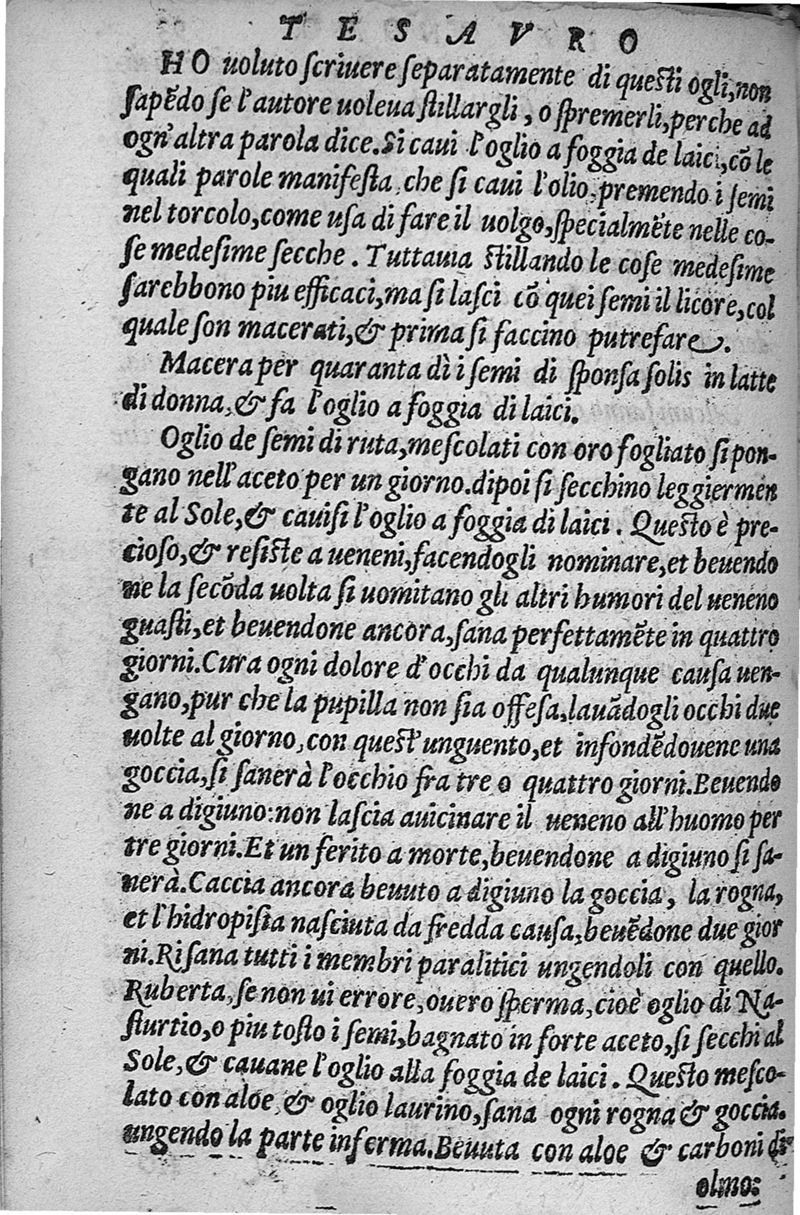 TESAVRO
HO uoluto ſcriuere ſeparatamente di queſti ogli, non
ſapẽdo ſe l'autore uoleua ſtillargli, o ſpremerli, perche ad
ogn'altra parola dice. Si caui l'oglio a foggia de laici, cõ le
quali parole manifeſta, che ſi caui l'olio, premendo i ſemi
nel torcolo, come uſa di fare il uolgo, ſpecialmẽte nelle co-
ſe medeſime ſecche. Tuttauia ſtillando le coſe medeſime
ſarebbono piu efficaci, ma ſi laſci cõ quei ſemi il licore, col
quale ſon macerati, & prima ſi faccino putrefare.
Macera per quaranta dì i ſemi di ſponſa ſolis in latte
di donna, & fa l'oglio a foggia di laici.
Oglio de ſemi di ruta, meſcolati con oro fogliato ſi pon-
gano nell'aceto per un giorno. dipoi ſi ſecchino leggiermen
te al Sole, & cauiſi l'oglio a foggia di laici. Queſto è pre-
cioſo, & reſiſte a ueneni, facendogli nominare, et beuendo
ne la ſecõda uolta ſi uomitano gli altri humori del ueneno
guaſti, et beuendone ancora, ſana perfettamẽte in quattro
giorni. Cura ogni dolore d'occhi da qualunque cauſa uen-
gano, pur che la pupilla non ſia offeſa, lauãdo gli occhi due
uolte al giorno, con queſt'unguento, et infondẽdouene una
goccia, ſi ſanerà l'occhio fra tre o quattro giorni. Beuendo
ne a digiuno: non laſcia auicinare il ueneno all'huomo per
tre giorni. Et un ferito a morte, beuendone a digiuno ſi ſa-
nerà. Caccia ancora beuuto a digiuno la goccia, la rogna,
et l'hidropiſia naſciuta da fredda cauſa, beuẽdone due gior
ni. Riſana tutti i membri paralitici ungendoli con quello.
Ruberta, ſe non ui errore, ouero ſperma, cioè oglio di Na-
ſturtio, o piu toſto i ſemi, bagnato in forte aceto, ſi ſecchi al
Sole, & cauane l'oglio alla foggia de laici. Queſto meſco-
lato con aloe, & oglio laurino, ſana ogni rogna & goccia.
ungendo la parte inferma. Beuuta con aloe & carboni di
olmo: